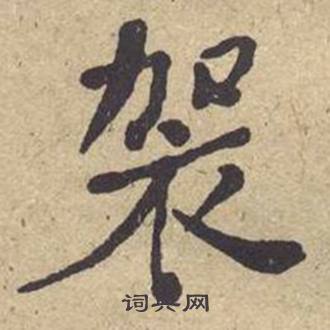 袈
词典网